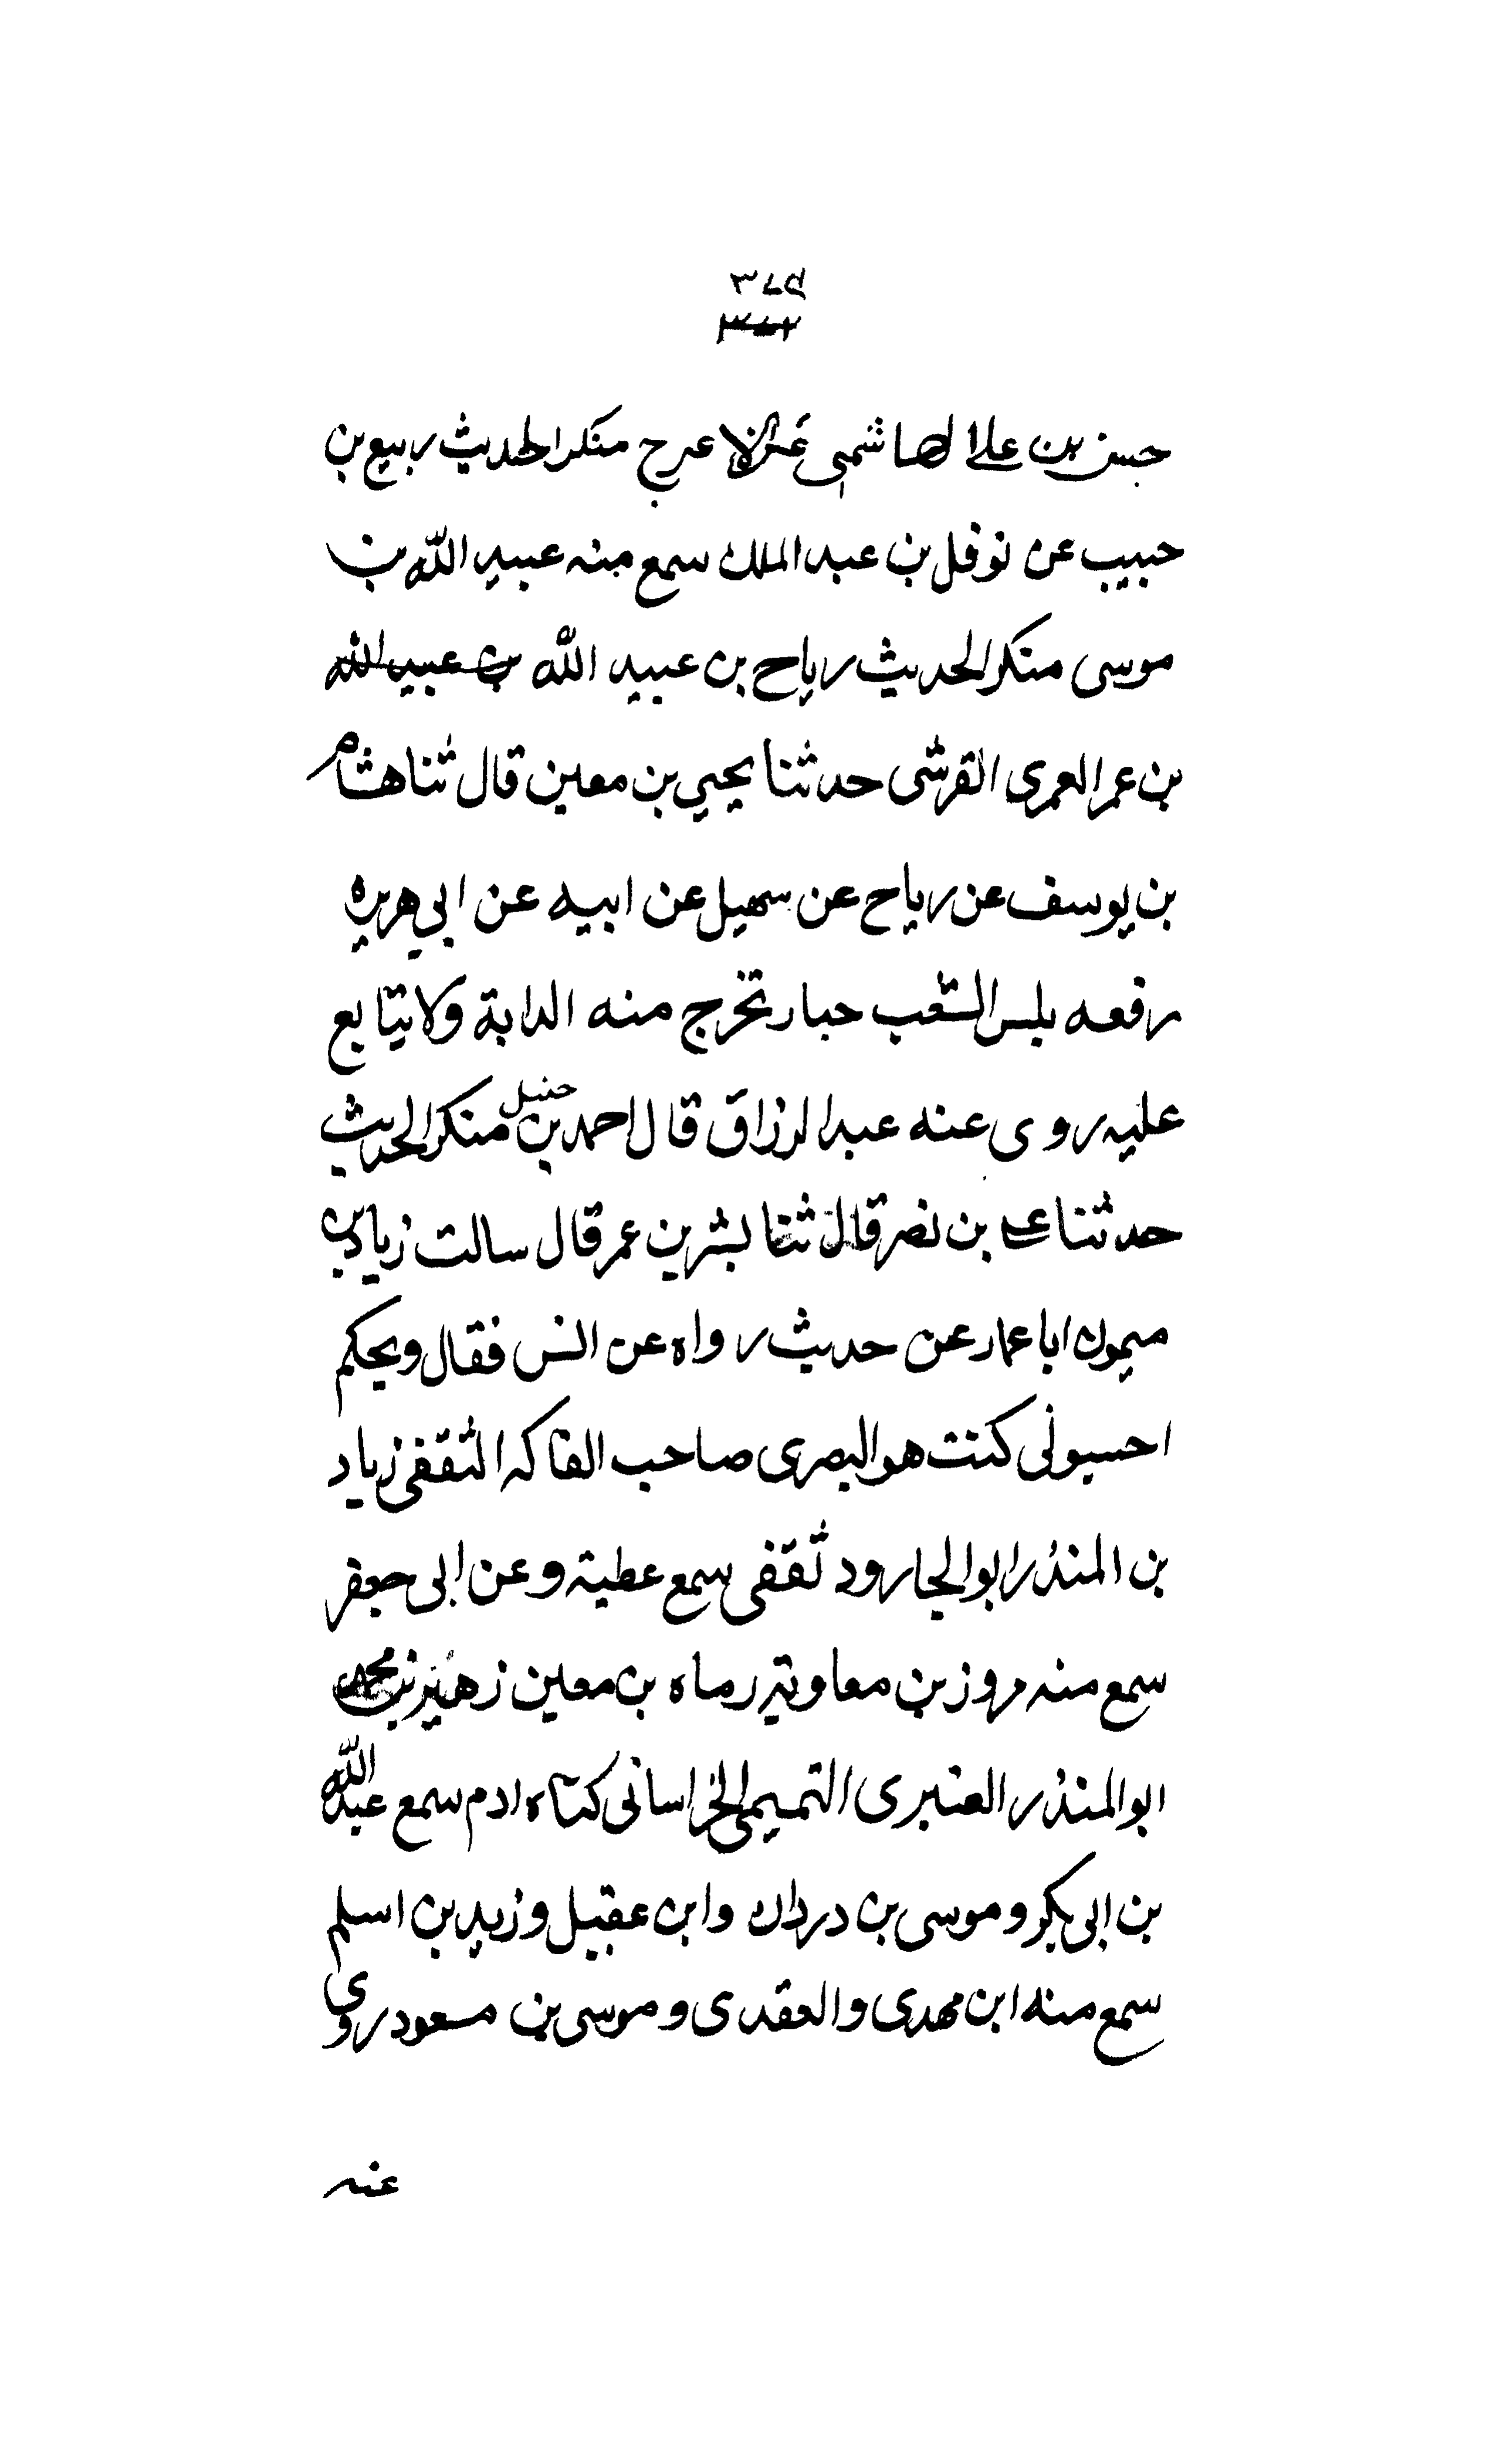 ٣٧٩
حسن بن على الهاشمى عن الاعرج منكر الحديث ربيع بن
حبيب عن نوفل بن عبد الملك سمع منه عبيد الله بن
موسى منكر الحديث رياح بن عبيد الله بن عبيد الله
بن عمر العمرى القرشى حدثنا يحيي بن معين قال ثنا هشام
بن يوسف عن رياح عن سهيل عن ابيه عن ابي هريره
رفعه بلس الشعب حبار تخرج منه الدابة ولا يتابع
عليه روى عنه عبد الرزاق قال احمد بن حنبل منكر الحديث
حدثنا على بن نصر قال ثنا بشر بن عمر قال سالت زياد بن
ميمون ابا عمار عن حديث رواه عن انس فقال ويحكم
احسبونى كنت هو البصرى صاحب الفاكه الثقفى زياد
بن المنذر ابو الجارود ثقفى سمع عطية وعن ابى جعفر
سمع منه مروز بن معاوية رماه بن معين زهير بن محمد
ابو المنذر العنبرى التميمى الخراسانى كناه ادم سمع عبد الله
بن ابى بكر وموسى بن دردان وابن عقيل وزيد بن اسلم
سمع منه ابن مهدى والعقدى وموسى بن مسعود روى
عنه